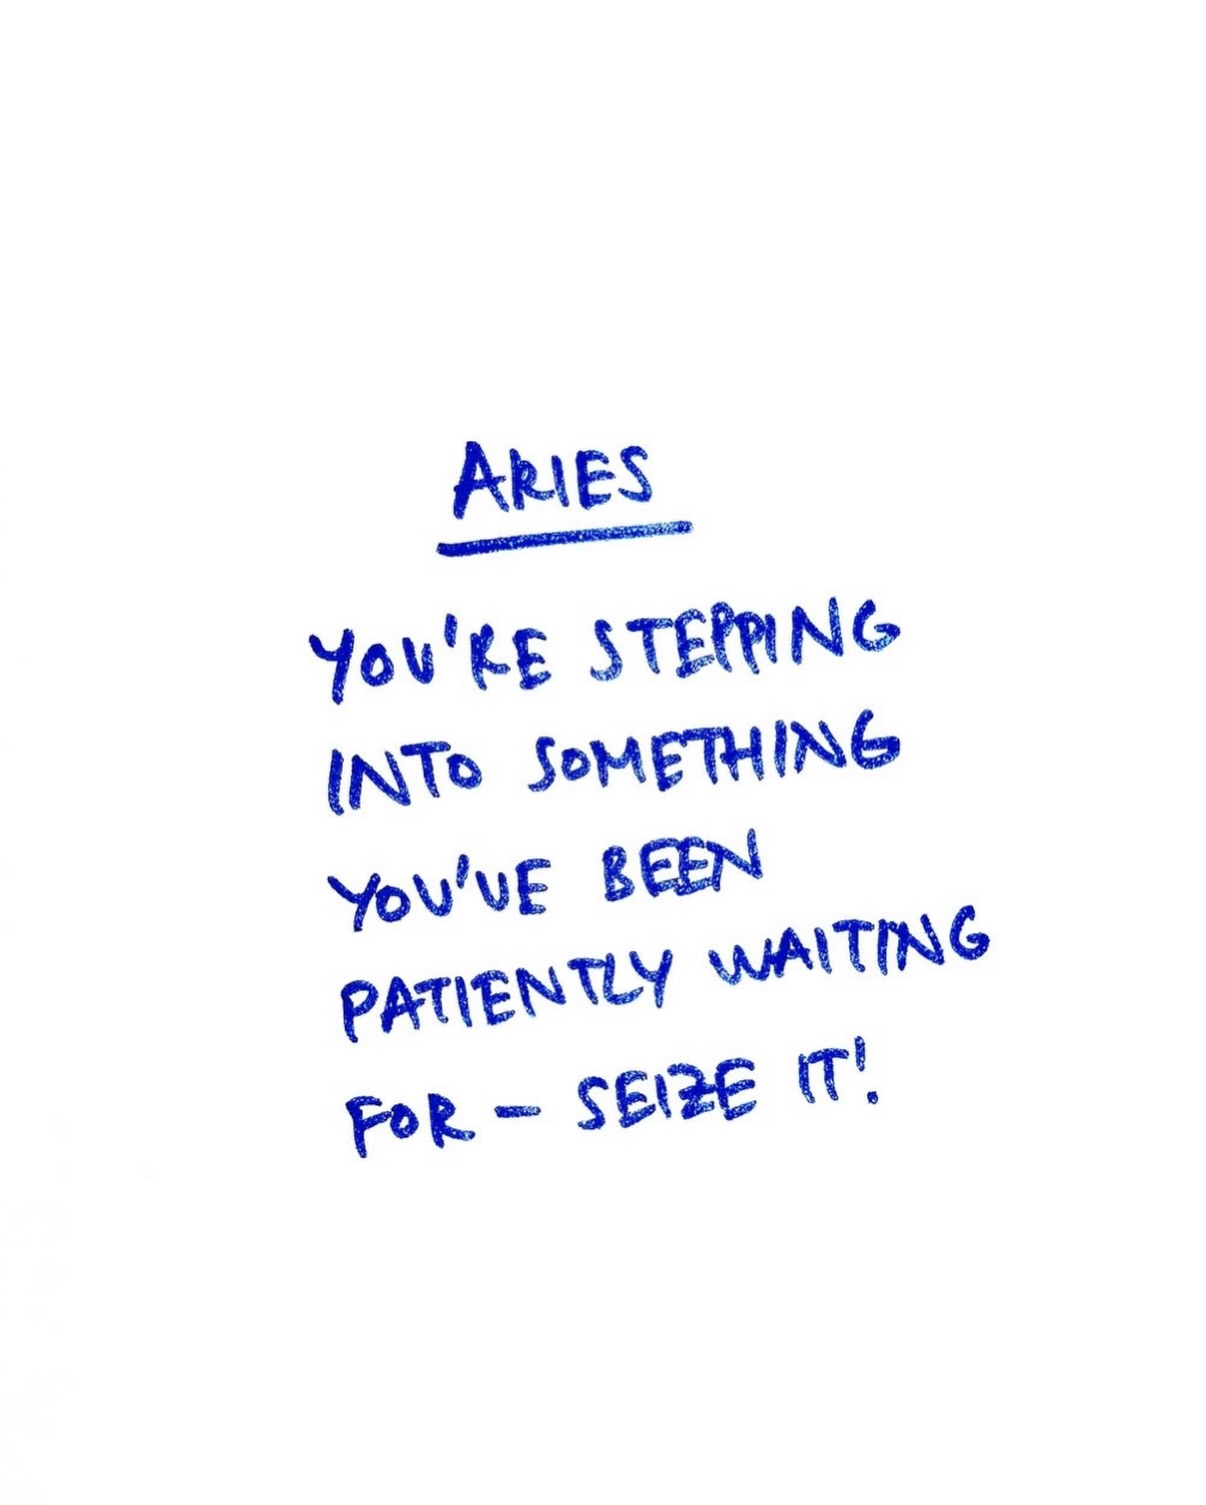 ARIES
YOU'RE STEPPING
INTO SOMETHING
YOU'VE BEEN
PATIENTLY WAITING
FOR – SEIZE IT!